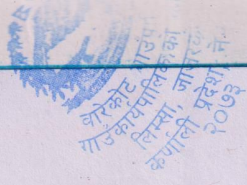 बारेकोट गाउँपा
गाउँकार्यपालिकाको
लिम्सा, जाजरको
कर्णाली प्रदेश, ने
२०७३